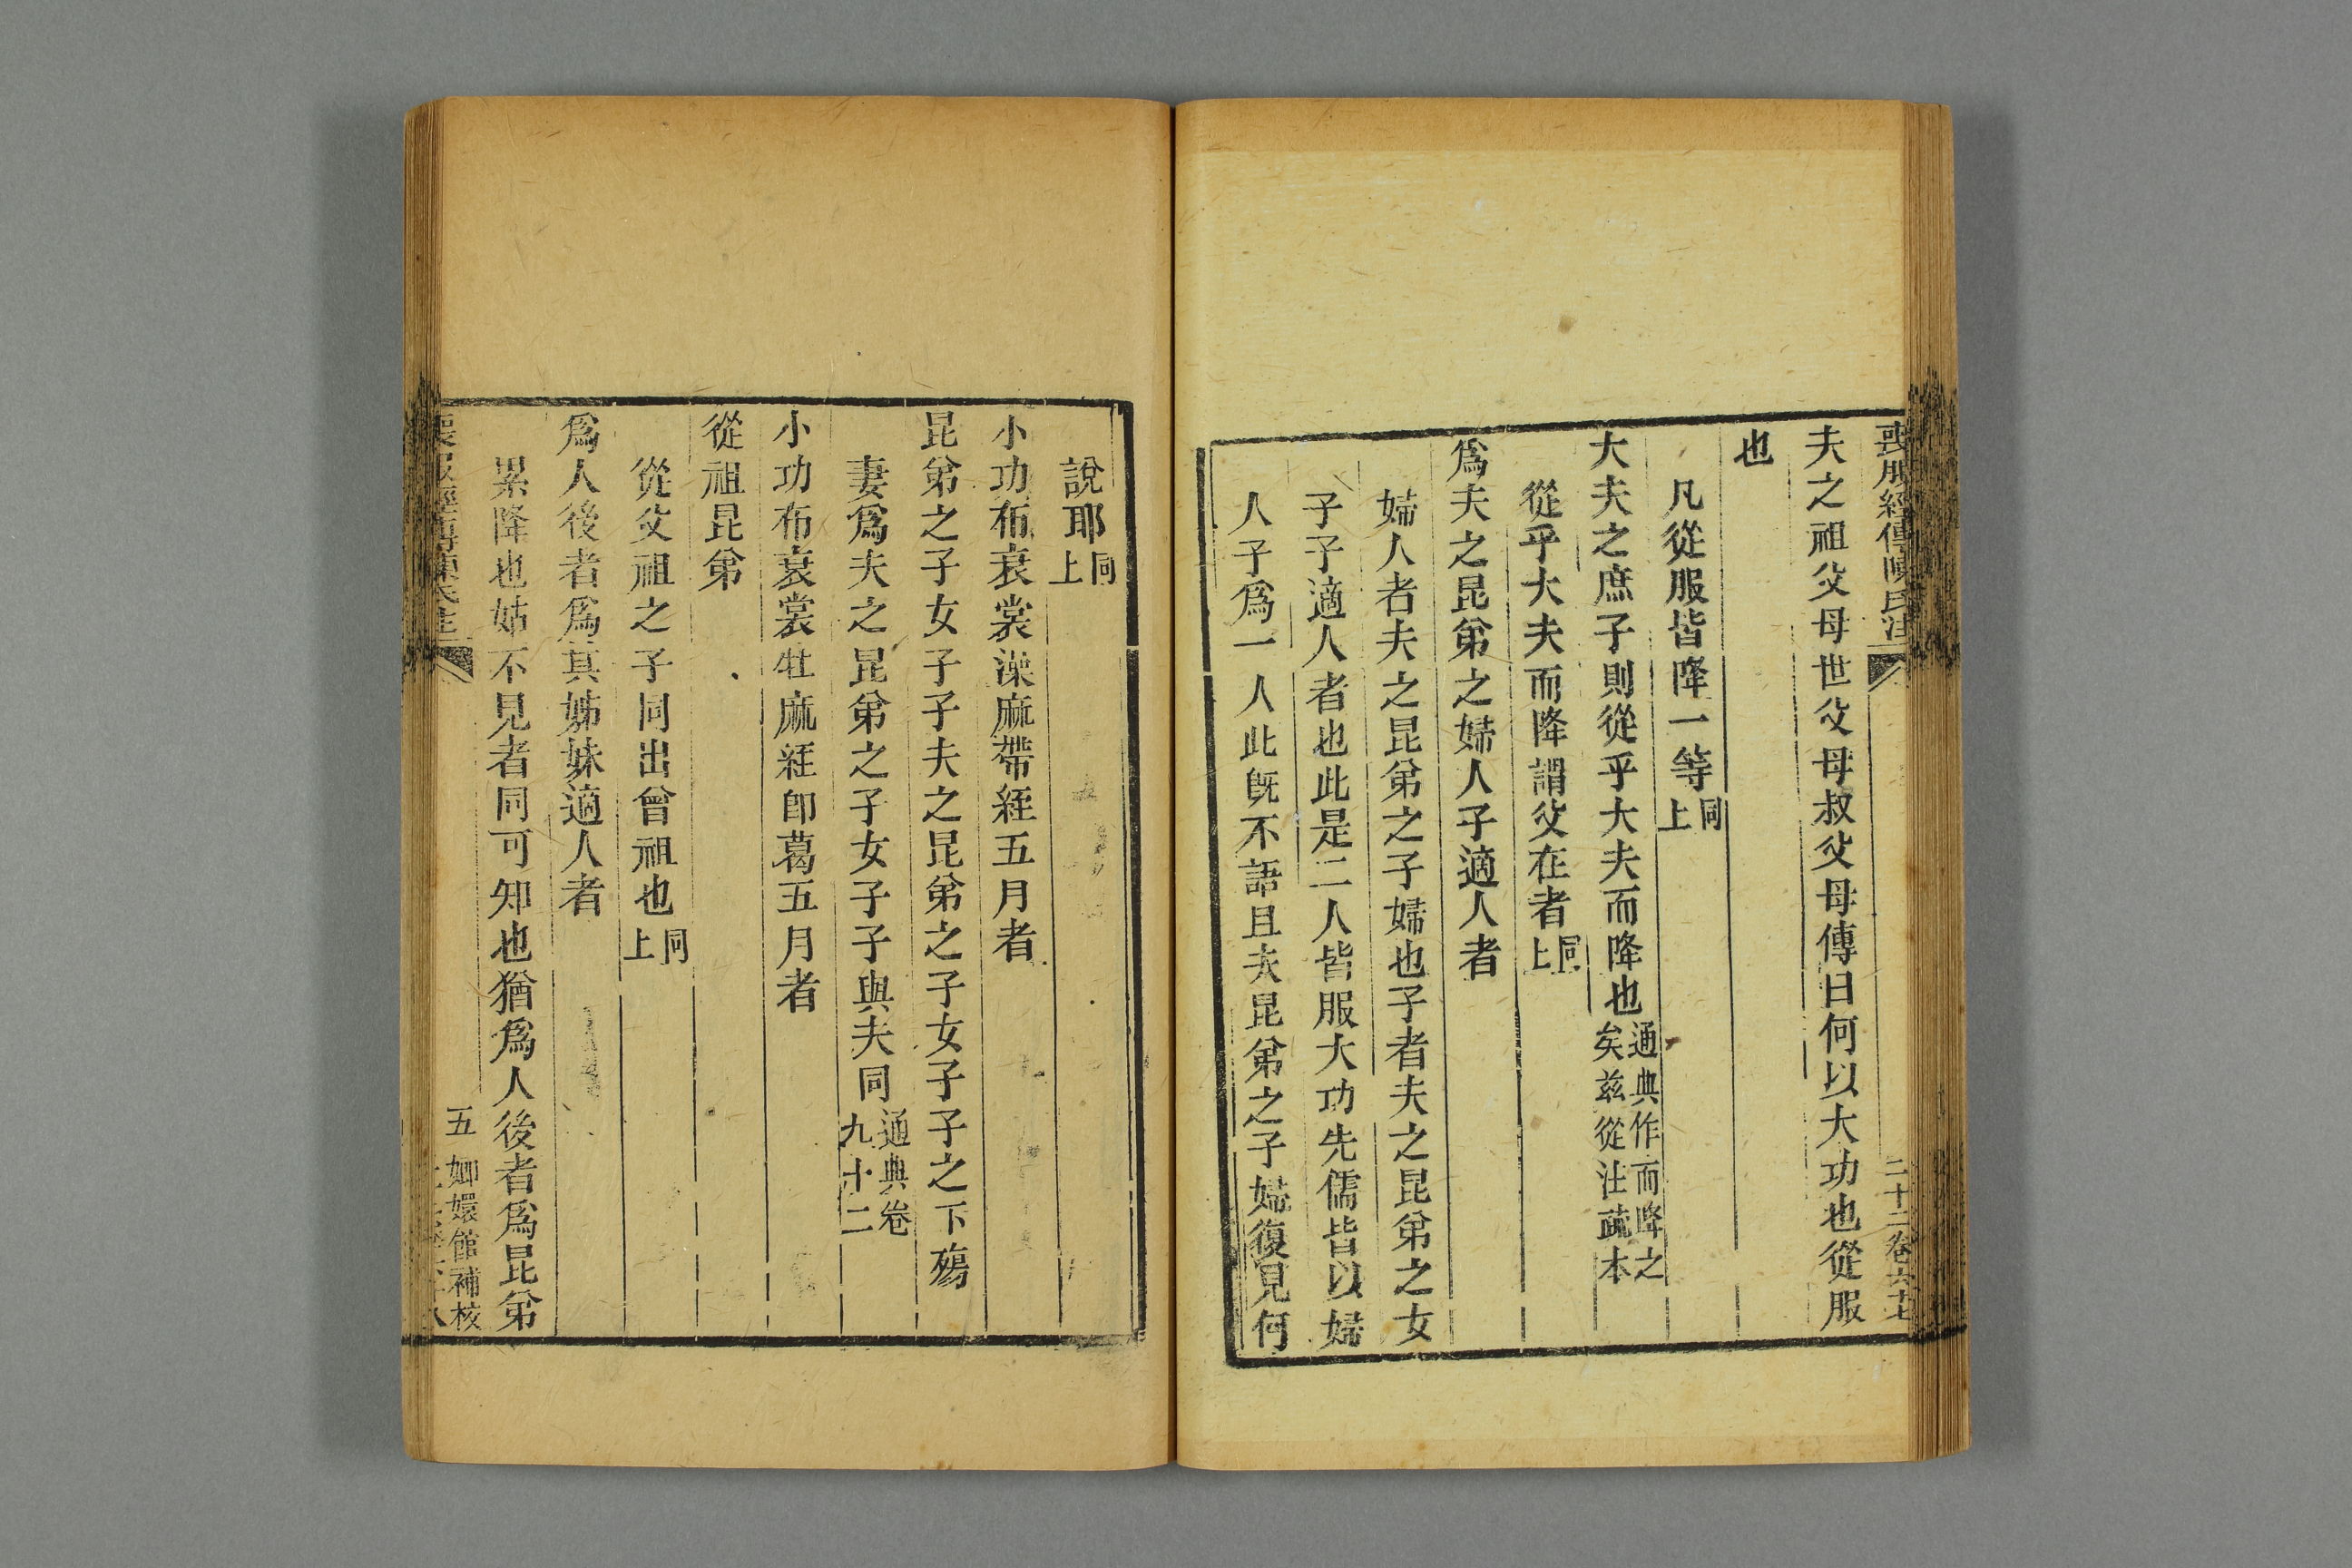 喪服經傳陳氏注
二十二卷六十七
夫之祖父母世父母叔父母傳曰何以大功也從服
也
凡從服皆降一等同上
大夫之庶子則從乎大夫而降也通典作而降之矣兹從注疏本
從乎大夫而降謂父在者同上
爲夫之昆弟之婦人子適人者
婦人者夫之昆弟之子婦也子者夫之昆弟之女
子子適人者也此是二人皆服大功先儒皆以婦
人子爲一人此既不語且夫昆弟之子婦復見何
說耶同上
小功布衰裳澡麻帶絰五月者
昆弟之子女子子夫之昆弟之子女子子之下殤
妻爲夫之昆弟之子女子子與夫同通典卷九十二
小功布衰裳牡麻絰卽葛五月者
從祖昆弟
從父祖之子同出曾祖也同上
爲人後者爲其姊妹適人者
累降也姑不見者同可知也猶爲人後者爲昆弟
喪服經傳陳氏注
五
嫏嬛館補校